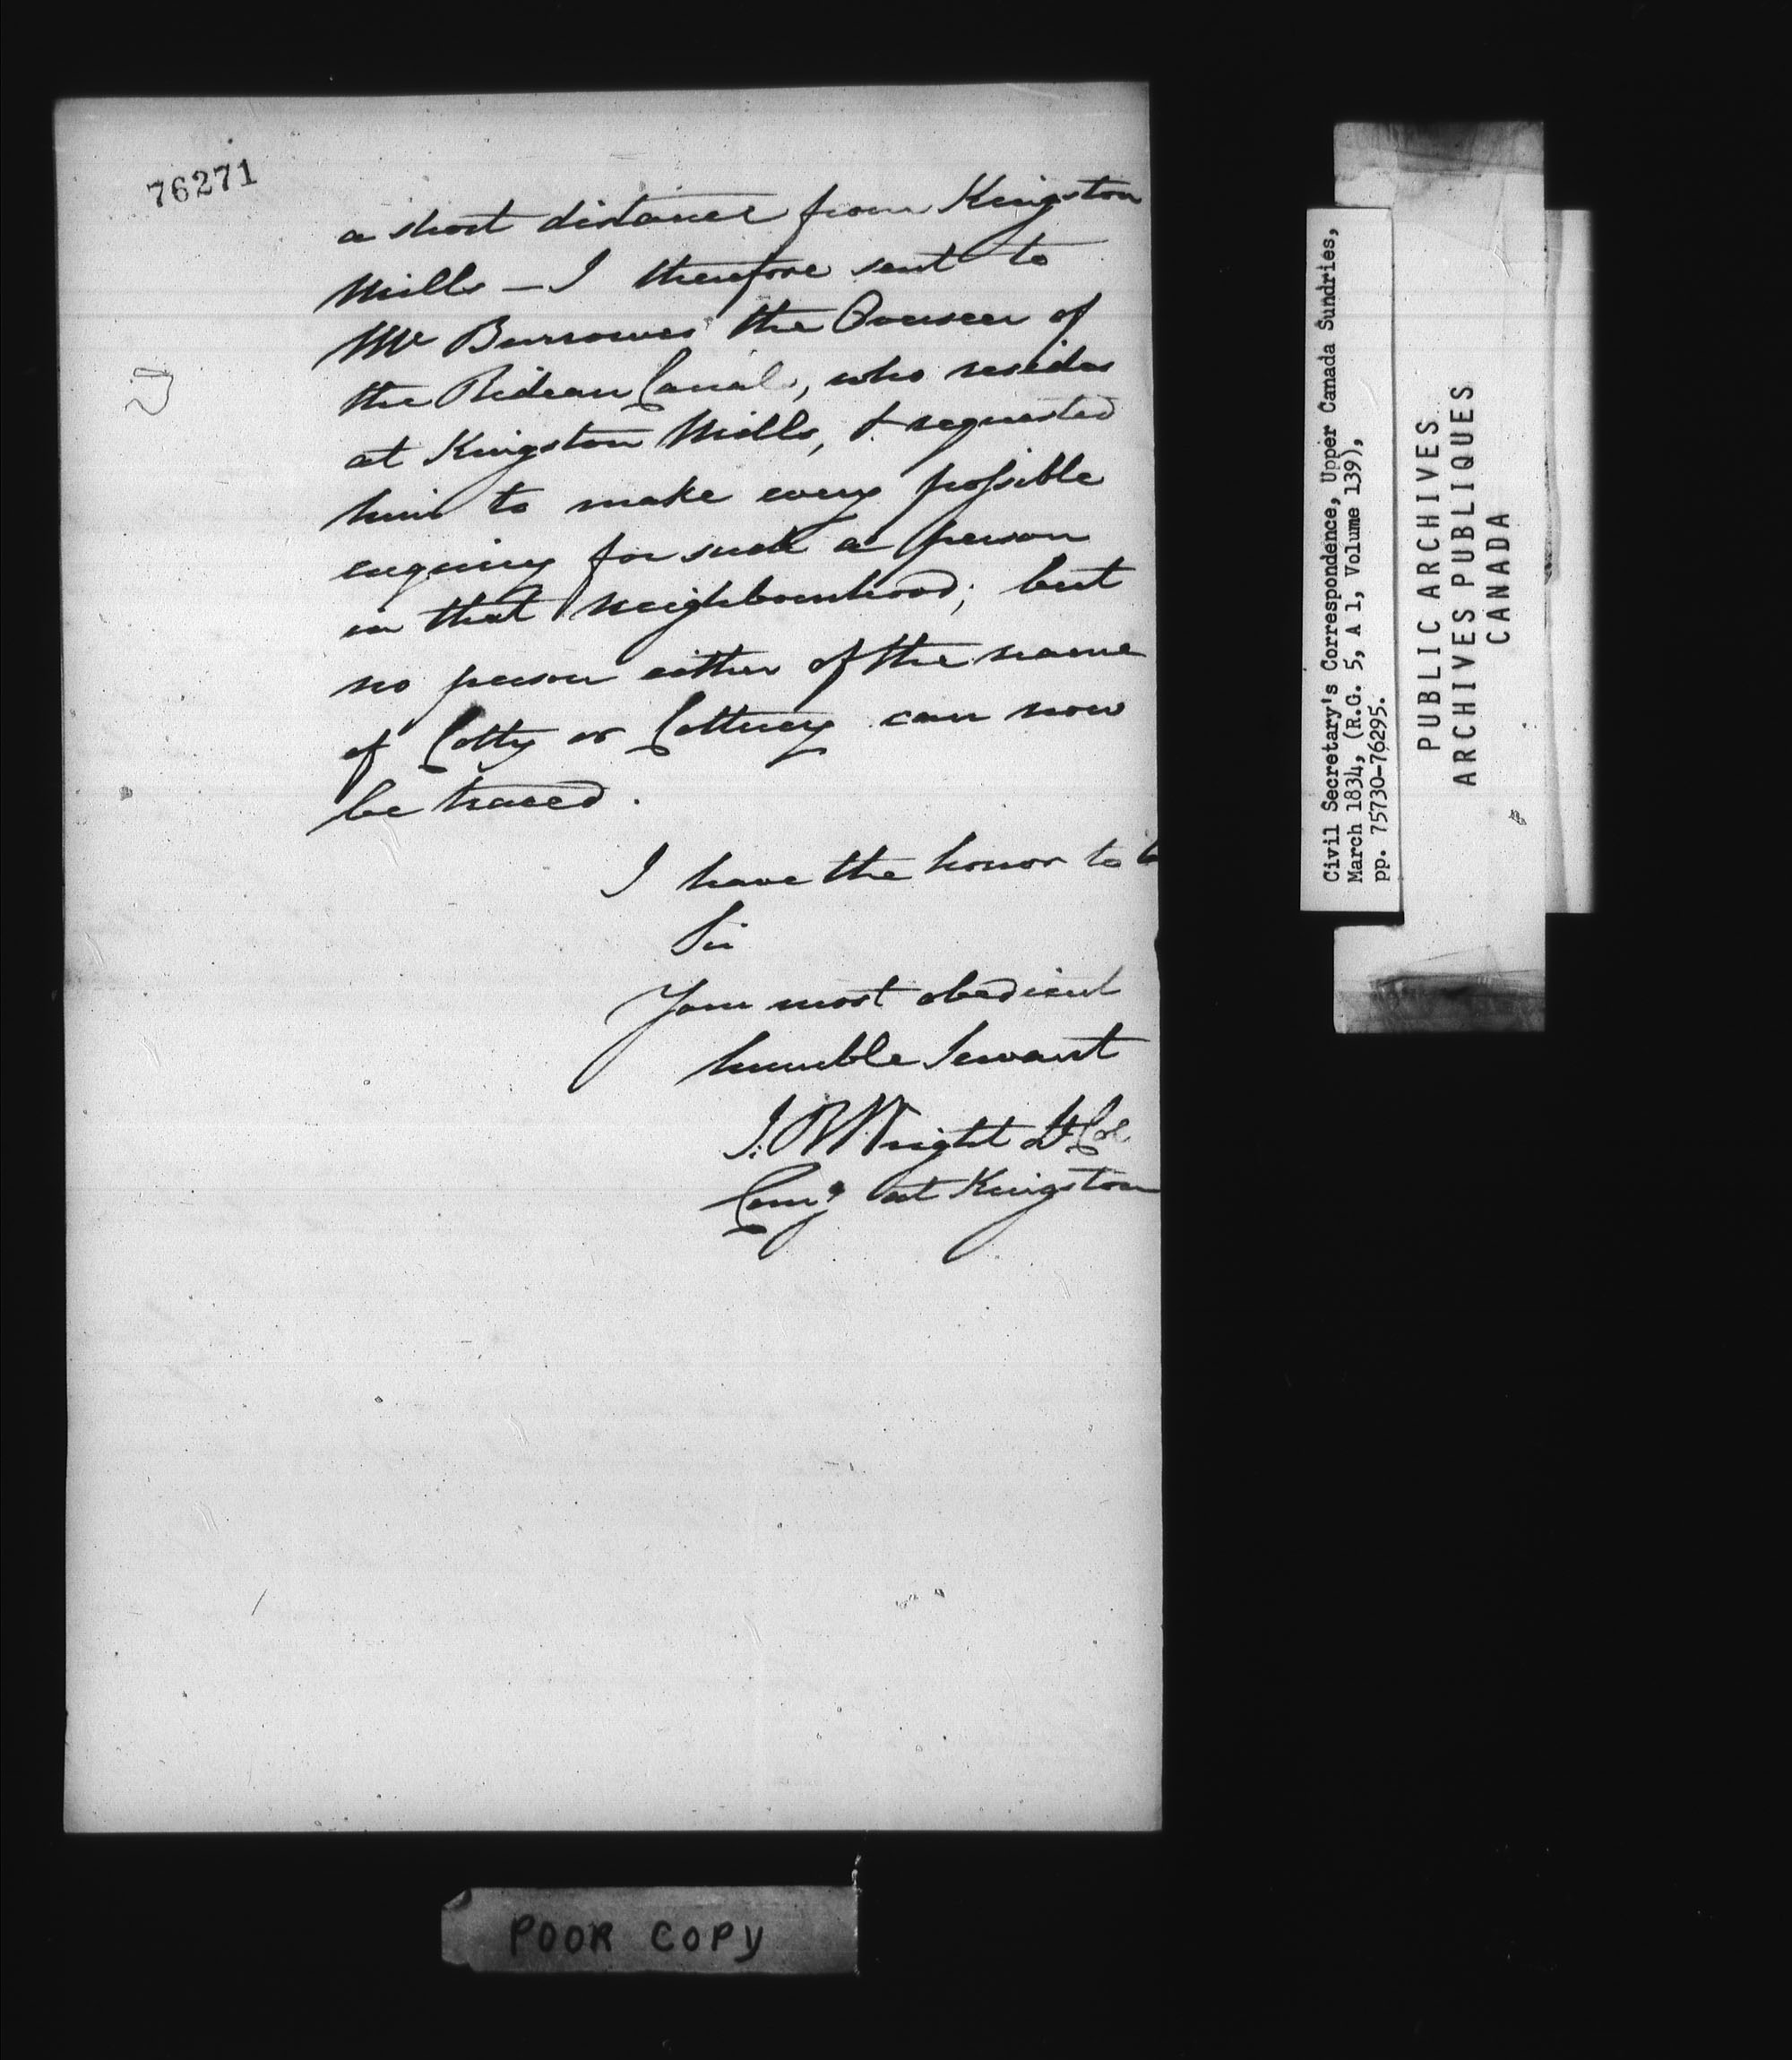 76271
a short distance from Kingston
Mills – I therefore sent to
Mr Burrowes the Overseer of
the Rideau Canal, who resides
at Kingston Mills, & requested
him to make every possible
enquiry for such a person
in that neighbourhood; but
no person either of the name
of Cotty or Cottney can now
be traced.
I have the honor to b
Sir
Your most obedient
humble Servant
J. R Wright Lt Col
Comg at Kingston
Civil Secretary's Correspondence, Upper Canada Sundries,
March 1834, (R.G. 5, A 1, Volume 139),
pp. 75730-76295.
PUBLIC ARCHIVES
ARCHIVES PUBLIQUES
CANADA
POOR COPY